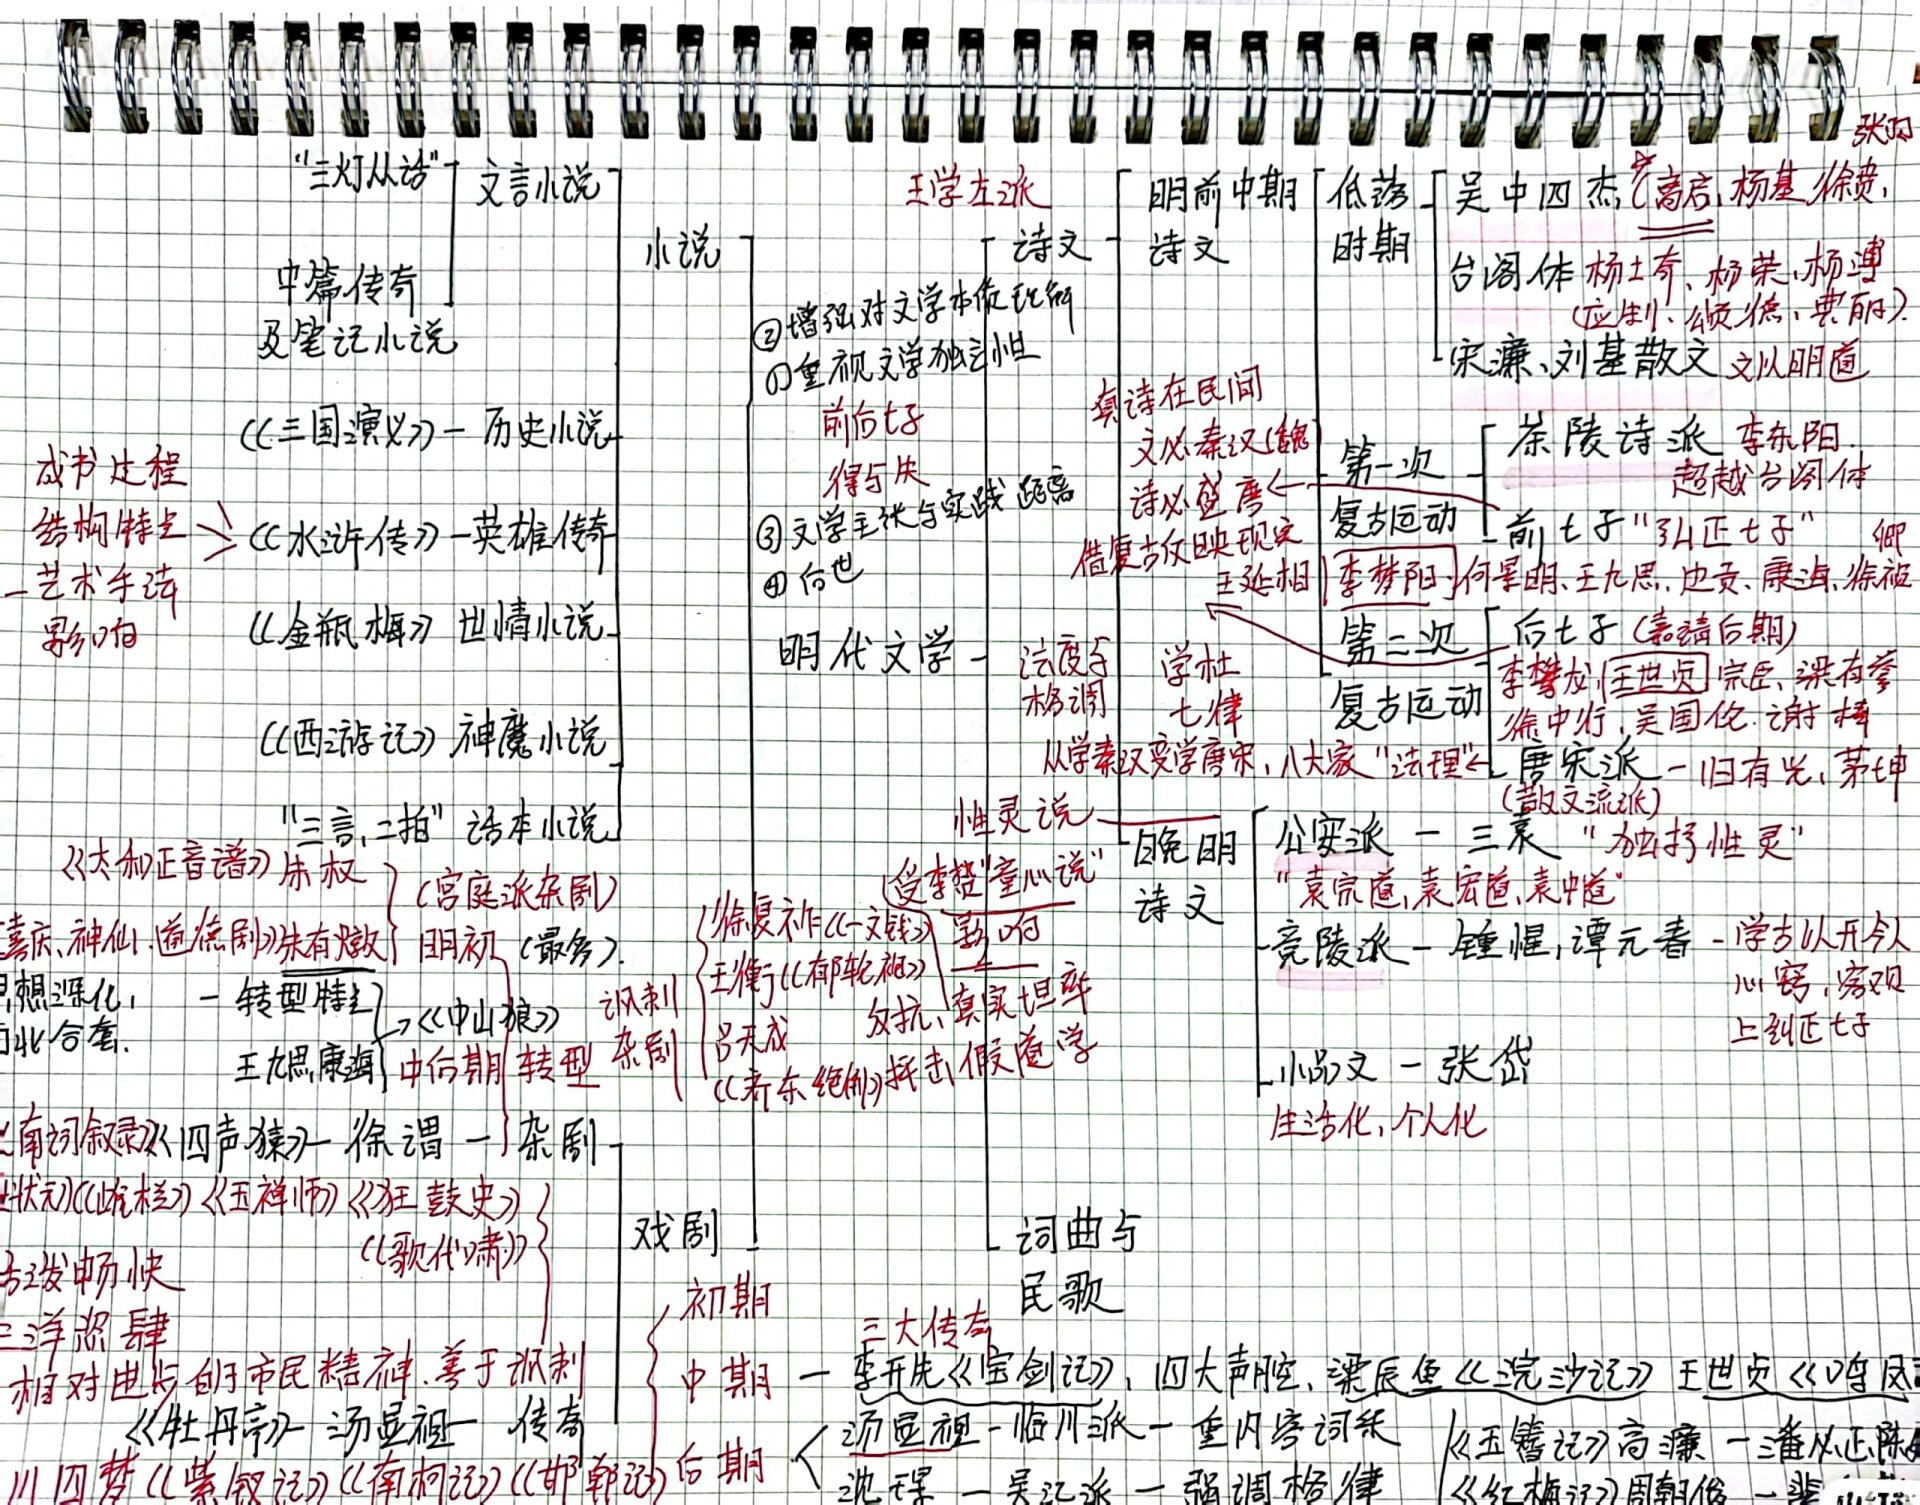 张羽
"三灯丛话" 文言小说
中篇传奇
及笔记小说
《三国演义》— 历史小说
《水浒传》— 英雄传奇
《金瓶梅》 世情小说
《西游记》 神魔小说
"三言,二拍" 话本小说
成书过程
结构特点
艺术手法
影响
小说
明代文学
王学左派
②增强对文学本质理解
①重视文学独立性
前后七子
得与失
③文学主张与实践距离
④后世
诗文
明前中期
诗文
低落
时期
吴中四杰(高启,杨基,徐贲,
台阁体 杨士奇、杨荣、杨溥
(应制、颂德、典丽)
宋濂、刘基散文 文以明道
真诗在民间
文必秦汉(魏)
诗必盛唐
借复古反映现实
第一次
复古运动
茶陵诗派 李东阳
超越台阁体
前七子"弘正七子" 卿
王廷相 李梦阳,何景明、王九思、边贡、康海、徐祯
第二次
复古运动
后七子(嘉靖后期)
李攀龙,王世贞,宗臣、梁有誉
徐中行,吴国伦,谢榛
法度与
格调
学杜
七律
从学秦汉变学唐宋,八大家"法理" 唐宋派 — 归有光,茅坤
(散文流派)
性灵说
晚明
诗文
公安派 — 三袁 "独抒性灵"
"袁宗道,袁宏道,袁中道"
竟陵派 — 锺惺,谭元春 — 学古以开今人
心窍,
上到正七子
小品文 — 张岱
生活化,个人化
(受李贽"童心说"
影响
反抗,真实坦率
抨击假道学
词曲与
民歌
《太和正音谱》朱权
喜庆、神仙、道德剧》朱有燉
(宫庭派杂剧)
明初 (最多).
想深化,
北合套.
— 转型特点
王九思,康海
《中山狼》
中后期 转型
讽刺
杂剧
徐复祚《一文钱》
王衡《郁轮袍》
吕天成
《齐东绝倒》
南词叙录》《四声猿》— 徐渭 — 杂剧
状元》《《玉禅师》《狂鼓史》
《歌代啸》
发畅快
洋恣肆
相对进步的市民精神.善于讽刺
戏剧
《牡丹亭》— 汤显祖 — 传奇
川四梦《紫钗记》《南柯记》《邯郸记》
初期
三大传奇
中期 — 李开先《宝剑记》,四大声腔,梁辰鱼《浣沙记》王世贞《鸣凤
后期
汤显祖 — 临川派 — 重内容词采
沈璟 — 吴江派 — 强调格律
《玉簪记》高濂 — 潘必正,陈
《红梅记》周朝俊 —